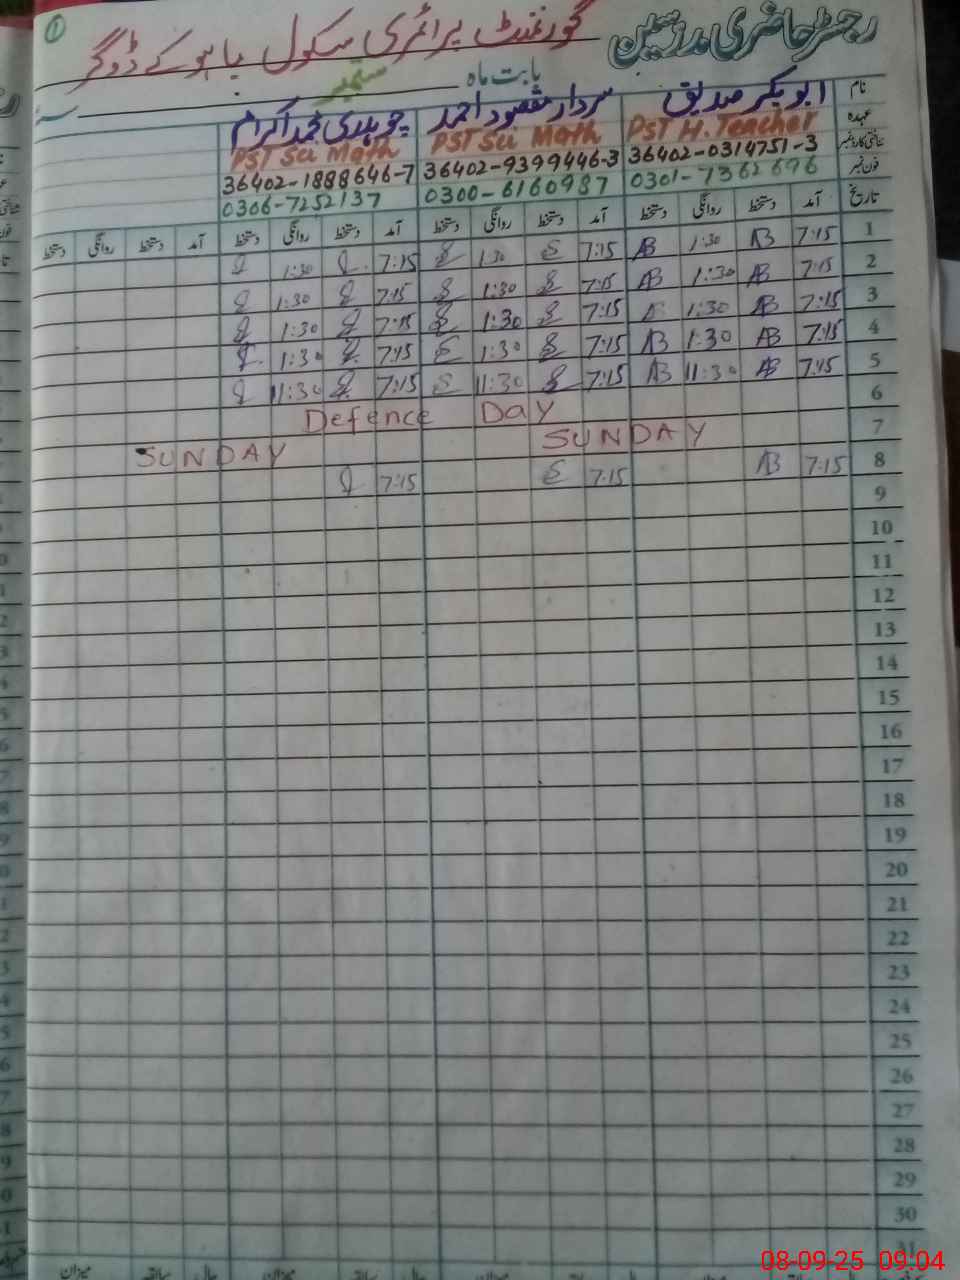 رجسٹر حاضری مدرسین گورنمنٹ پرائمری سکول باہو کے ڈوگر ①
بابت ماہ ستمبر
نام ابوبکر صدیق سردار مقصود احمد چوہدری محمد اکرام
عہدہ PST H. Teacher PST Sci Math PST Sci Math
شناختی کارڈ نمبر 36402-0314751-3 36402-9399446-3 36402-1888646-7
فون نمبر 0301-7362696 0300-6160987 0306-7252137
تاریخ آمد دستخط روانگی دستخط آمد دستخط روانگی دستخط آمد دستخط روانگی دستخط آمد دستخط روانگی دستخط
1 7:15 AB 1:30 AB 7:15 1:30 7:15 1:30
2 7:15 AB 1:30 AB 7:15 1:30 7:15 1:30
3 7:15 AB 1:30 7:15 1:30 7:15 1:30
4 7:15 AB 1:30 AB 7:15 1:30 7:15 1:30
5 7:15 AB 11:30 AB 7:15 11:30 7:15 11:30
6 Defence Day
7 SUNDAY SUNDAY
8 7:15 AB 7:15 7:15
9
10
11
12
13
14
15
16
17
18
19
20
21
22
23
24
25
26
27
28
29
30
31
میزان سابقہ حالی میزان سابقہ حالی میزان
08-09-25 09:04